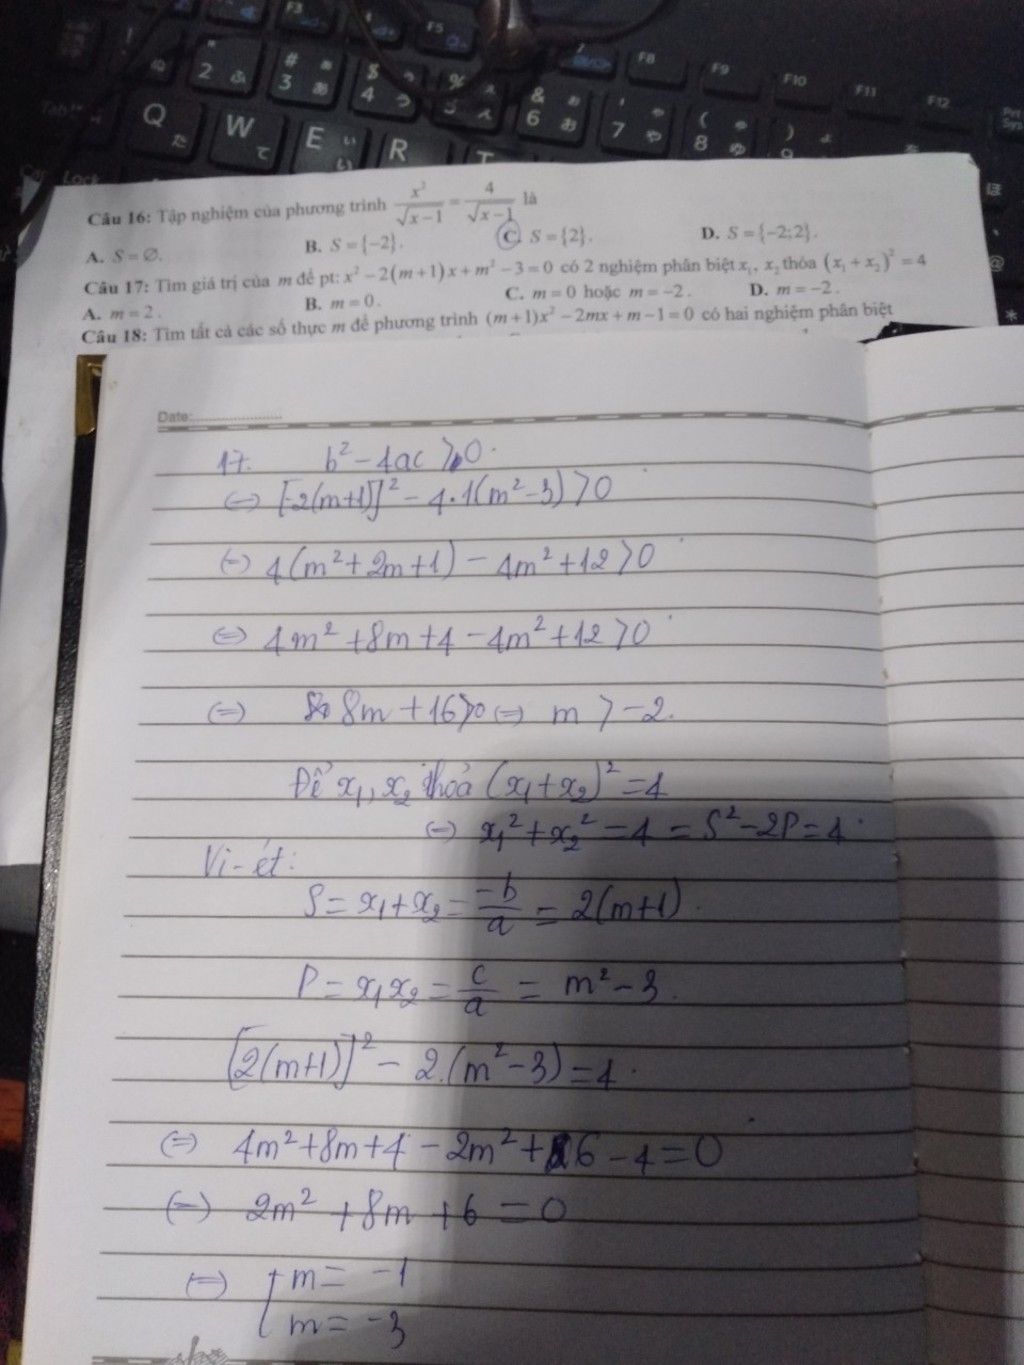 F3 F5 F8 F9 F10 F11 F12
2 # 3 $ 4 % & 6 7 ( 8 )
Q W E R T
Lock
Câu 16: Tập nghiệm của phương trình x²/√(x−1) = 4/√(x−1) là
A. S = ∅. B. S = {−2}. C. S = {2}. D. S = {−2;2}.
Câu 17: Tìm giá trị của m để pt: x² − 2(m+1)x + m² − 3 = 0 có 2 nghiệm phân biệt x₁, x₂ thỏa (x₁ + x₂)² = 4
A. m = 2. B. m = 0. C. m = 0 hoặc m = −2. D. m = −2.
Câu 18: Tìm tất cả các số thực m để phương trình (m+1)x² − 2mx + m − 1 = 0 có hai nghiệm phân biệt
Date:
17. b² − 4ac > 0.
⇔ [-2(m+1)]² − 4.1(m² − 3) > 0
⇔ 4(m² + 2m + 1) − 4m² + 12 > 0
⇔ 4m² + 8m + 4 − 4m² + 12 > 0
⇔ 8m + 16 > 0 ⇔ m > −2.
Để x₁, x₂ thỏa (x₁ + x₂)² = 4
⇔ x₁² + x₂² = 4 = S² − 2P = 4.
Vi-ét:
S = x₁ + x₂ = −b/a = 2(m+1)
P = x₁x₂ = c/a = m² − 3.
[2(m+1)]² − 2.(m² − 3) = 4.
⇔ 4m² + 8m + 4 − 2m² + 6 − 4 = 0
⇔ 2m² + 8m + 6 = 0
⇔ [ m = −1
m = −3